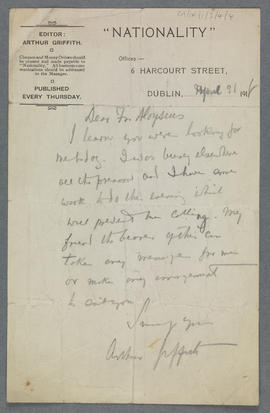 EDITOR:
ARTHUR GRIFFITH.
Cheques and Money Orders should
be crossed and made payable to
"Nationality." All business com-
munications should be addressed
to the Manager.
PUBLISHED
EVERY THURSDAY.
"NATIONALITY"
Offices:—
6 HARCOURT STREET,
DUBLIN, April 1918
Dear Fr. Aloysius
I learn you were looking for
me today. I was busy elsewhere
all the forenoon and I have some
work to do this evening which
will prevent me calling. My
friend the bearer of this can
take any message for me
or make any arrangement
to suit you
Sincerely yours
Arthur Griffith